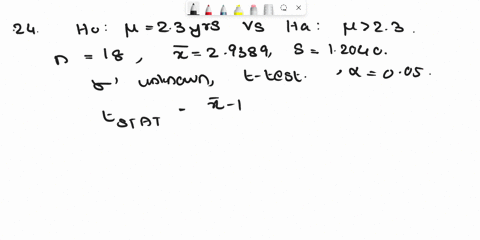 24. Ho: μ = 2.3 yrs vs Ha: μ > 2.3.
n = 18, x̄ = 2.9389, S = 1.2040.
σ unknown, t-test, α = 0.05.
tSTAT = x̄ - 1